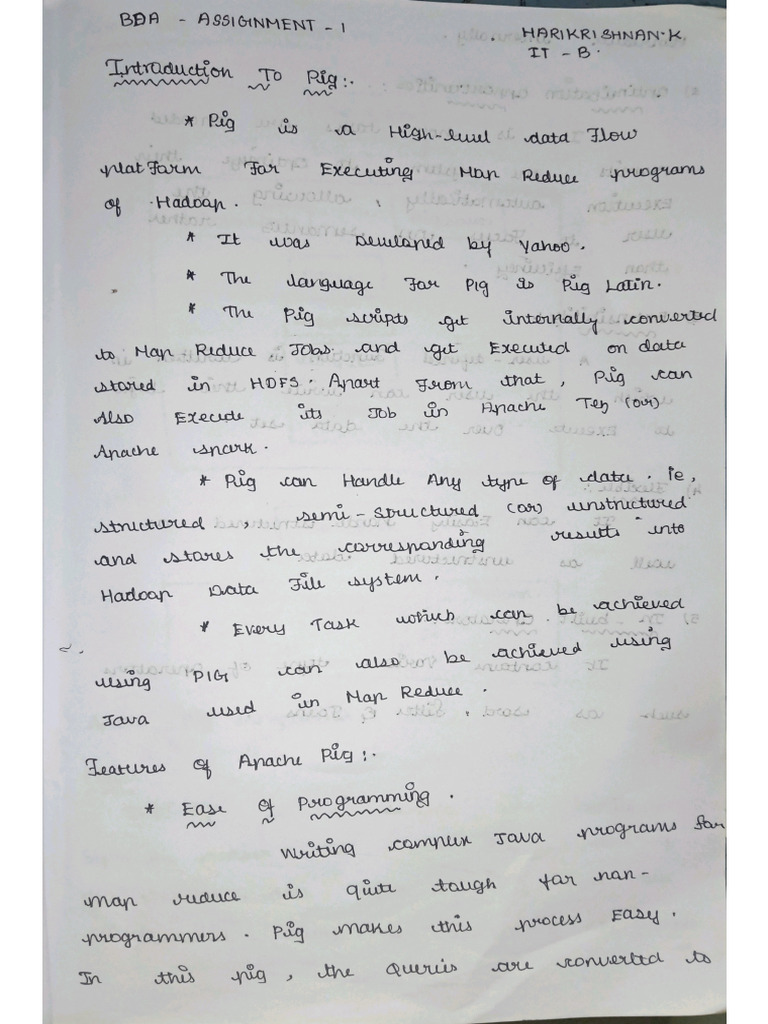 BDA - ASSIGNMENT - 1
HARIKRISHNAN.K.
IT - B.
Introduction To Pig:.
* Pig is a High-level data Flow
platform For Executing Map Reduce programs
of Hadoop.
* It was Developed by Yahoo.
* The language For PIG is Pig Latin.
* The Pig scripts get internally converted
to Map Reduce Jobs and get Executed on data
stored in HDFS. Apart From that, Pig can
Also Execute its Job in Apache Tez (or)
Apache spark.
* Pig can Handle Any type of data. ie,
structured, semi-structured (or) unstructured
and stores the corresponding results into
Hadoop Data File system.
* Every Task which can be achieved
using PIG can also be achieved using
Java used in Map Reduce.
Features of Apache Pig:.
* Ease of Programming.
Writing complex Java programs for
map reduce is quite tough for non-
programmers. Pig makes this process Easy.
In this pig, the Queries are converted to